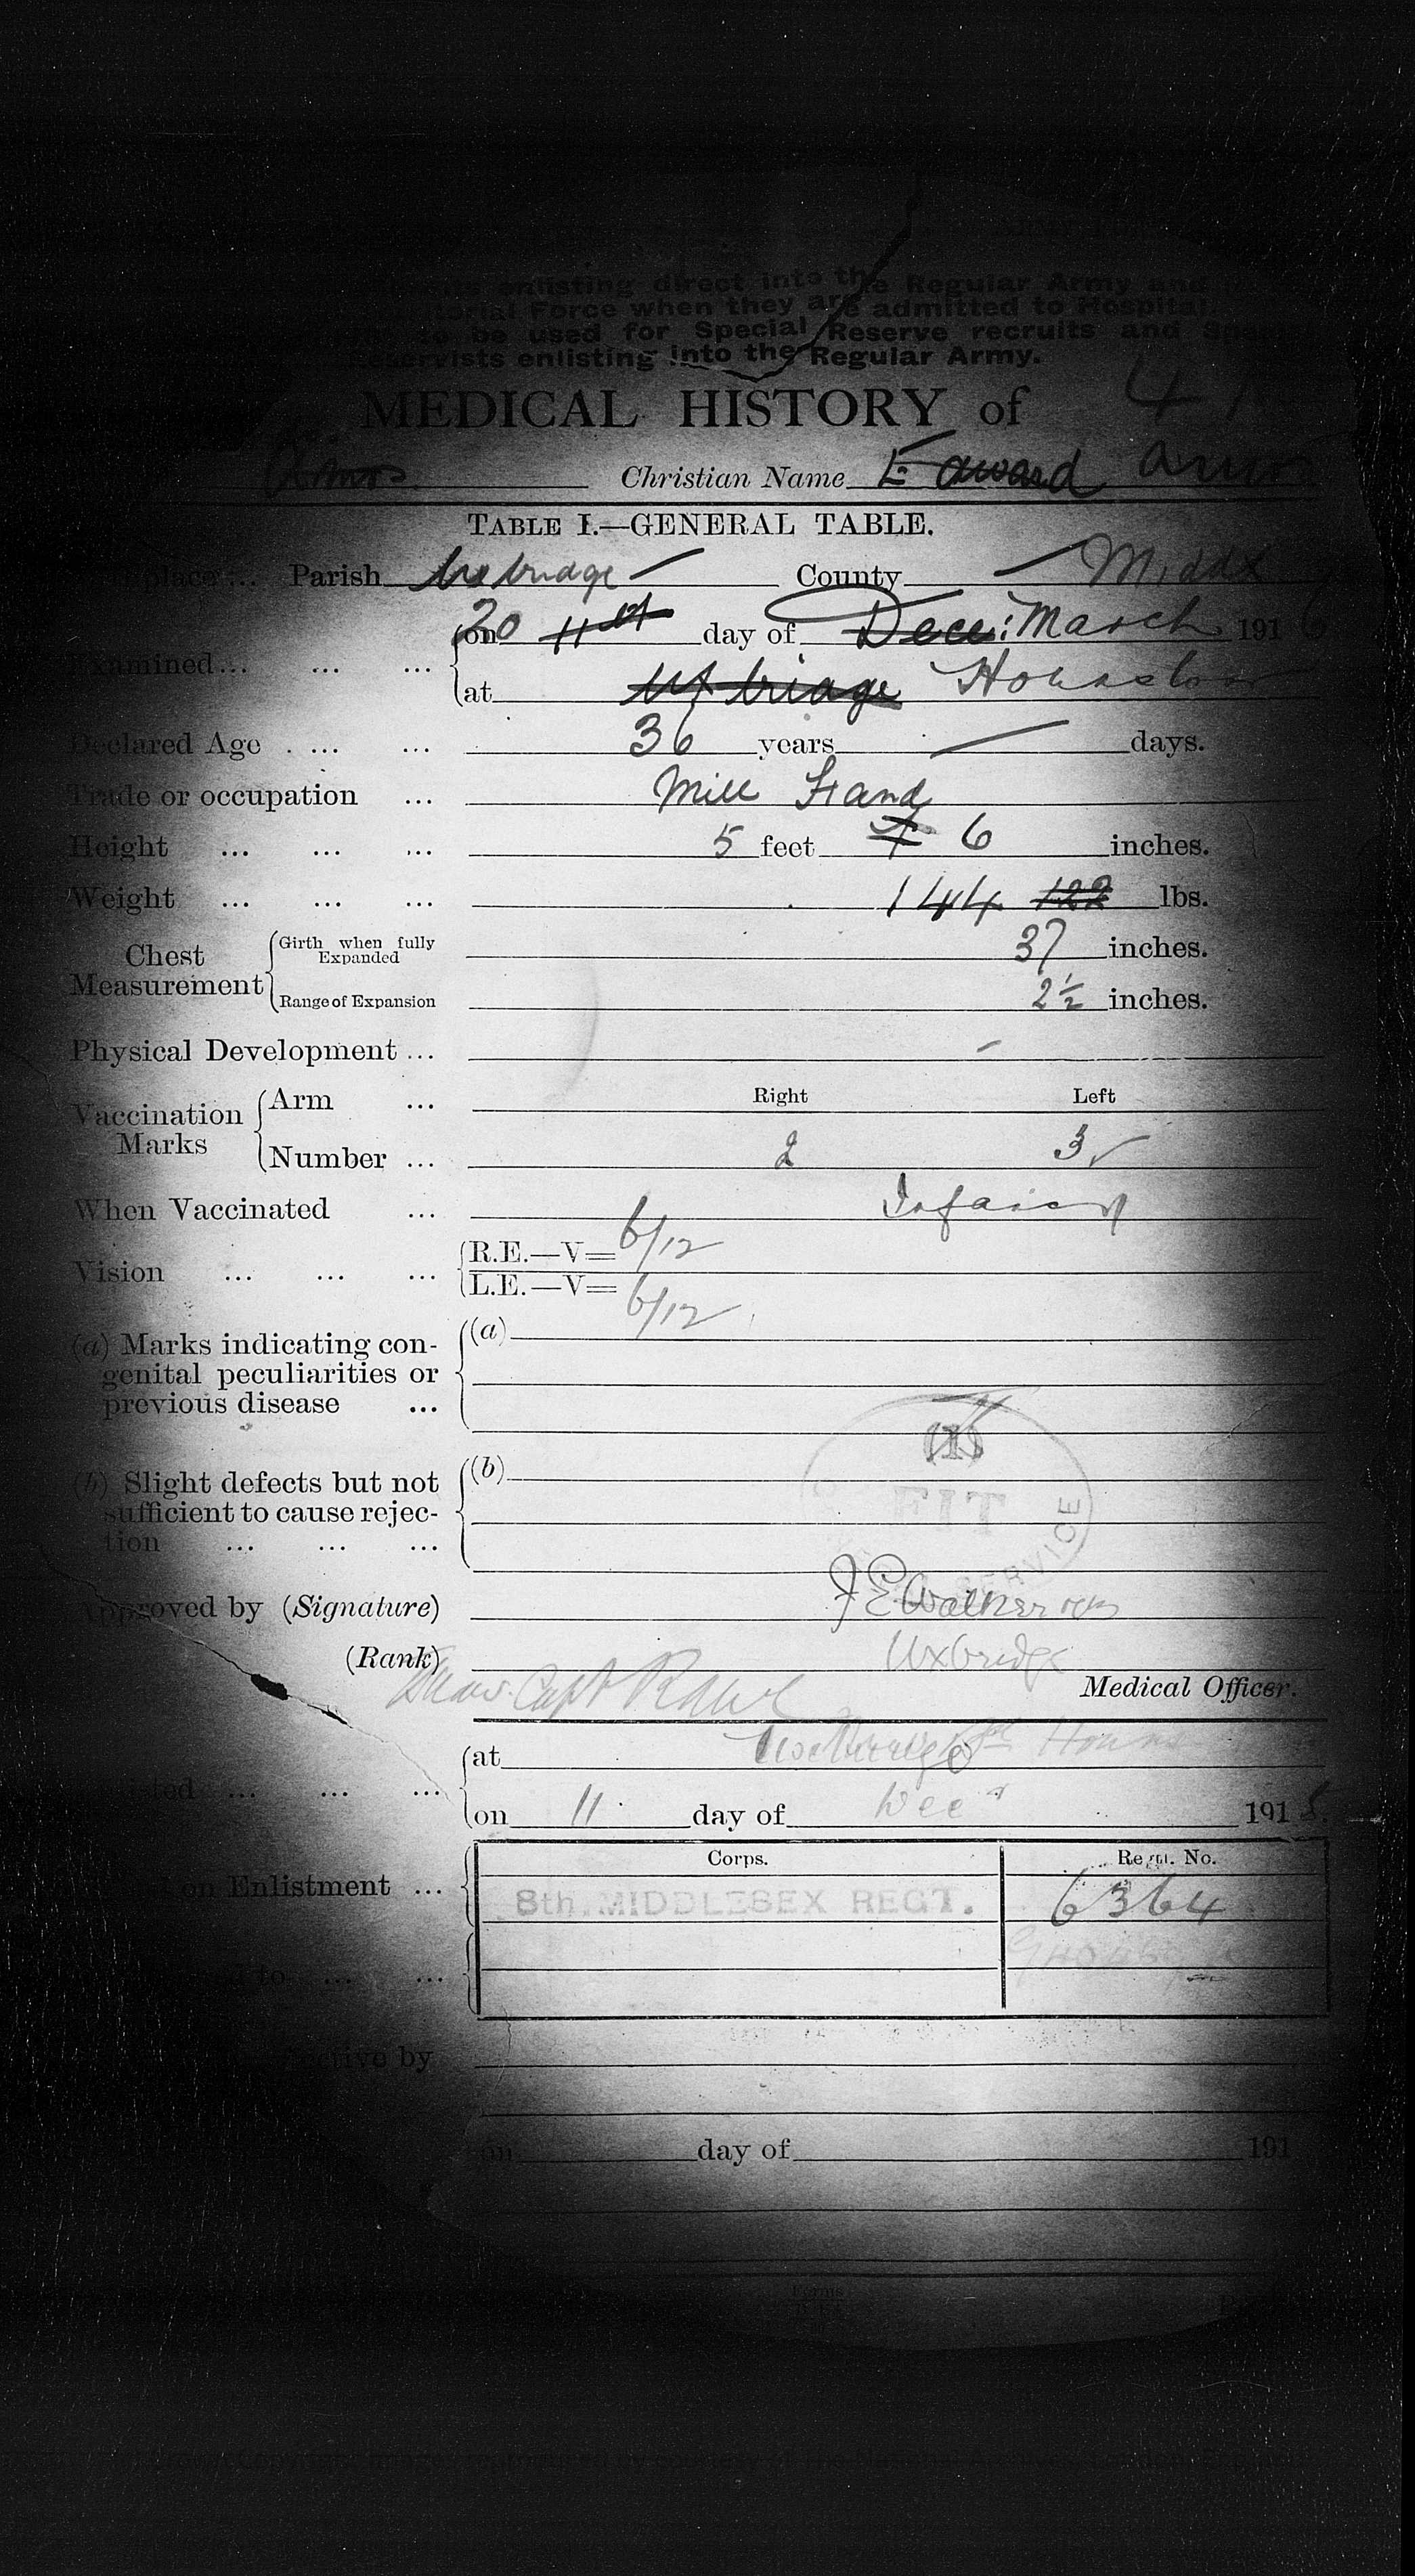 enlisting direct into the Regular Army and
Force when they are admitted to Hospital.
to be used for Special Reserve recruits and
enlisting into the Regular Army.
MEDICAL HISTORY of
Christian Name Edward
TABLE I.—GENERAL TABLE.
place ... Parish Uxbridge County Middx
on 20 11th day of Dec: March 191
Examined ... ... ...
at Uxbridge Hounslow
Declared Age ... ... 36 years — days.
Trade or occupation ... Mill Hand
Height ... ... ... 5 feet 4 6 inches.
Weight ... ... ... 144 122 lbs.
Chest Measurement
Girth when fully Expanded 37 inches.
Range of Expansion 2½ inches.
Physical Development ... -
Right Left
Vaccination Marks
Arm ...
Number ... 2 3
When Vaccinated ... Infancy
Vision ... ... ...
R.E.—V= 6/12
L.E.—V= 6/12
(a) Marks indicating con-
genital peculiarities or
previous disease ...
(a)
(1)
(b) Slight defects but not
sufficient to cause rejec-
tion ... ... ...
(b)
FIT
SERVICE
Approved by (Signature) J E Walker
(Rank) Uxbridge
Capt RAMC
Medical Officer.
at Uxbridge
on 11 day of Dec 191
Corps. Regtl. No.
on Enlistment ... 8th. MIDDLESEX REGT. 6364
to ... ...
by
on day of 191
Forms